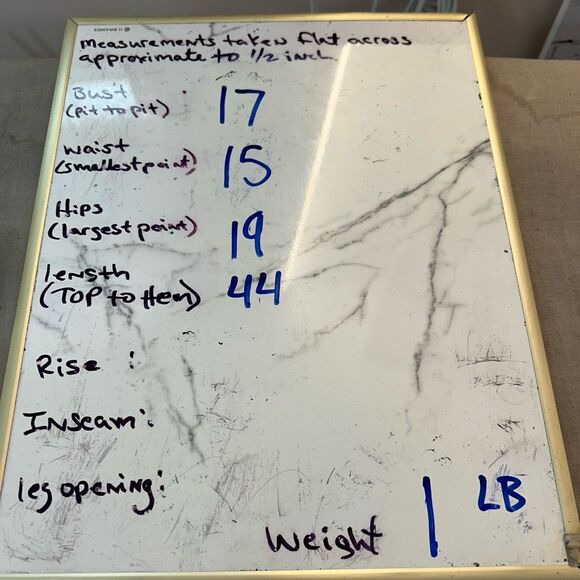 U BRANDS
measurements taken flat across
approximate to 1/2 inch
Bust : 17
(pit to pit)
waist
(smallest point) 15
Hips
(largest point) 19
length
(TOP to Hem) 44
Rise :
Inseam:
leg opening:
Weight 1 LB